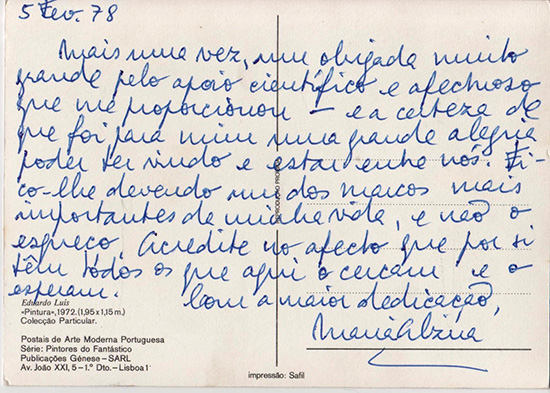 5 Fev. 78
Mais uma vez, um obrigada muito
grande pelo apoio científico e afectuoso
que me proporcionou — e a certeza de
que foi para mim uma grande alegria
poder ter vindo e estar entre nós. Fi-
co-lhe devendo um dos marcos mais
importantes da minha vida, e não o
esqueço. Acredite no afecto que por si
têm todos os que aqui o cercam e o
esperam.
Com a maior dedicação,
Maria Alzira
Eduardo Luís
«Pintura», 1972. (1,95 x 1,15 m.)
Colecção Particular.
Postais de Arte Moderna Portuguesa
Série: Pintores do Fantástico
Publicações Génese – SARL
Av. João XXI, 5 – 1.º Dto. – Lisboa 1
impressão: Safil